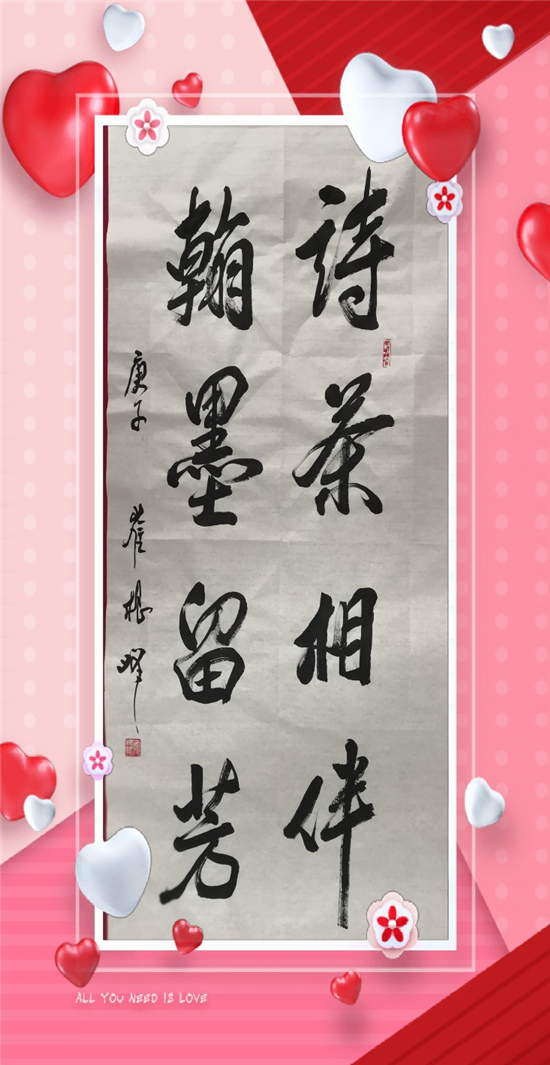 詩茶相伴
翰墨留芳
庚子 崔根學
ALL YOU NEED IS LOVE